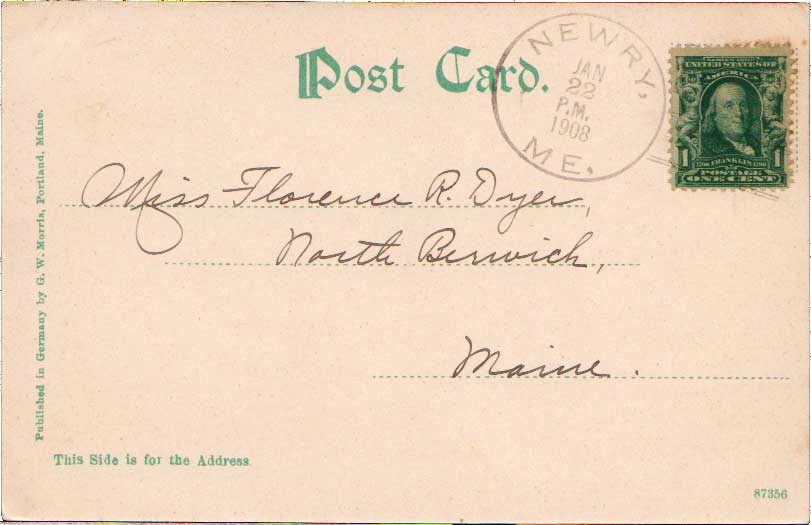 Post Card.
NEWRY,
JAN
22
P.M.
1908
ME.
SERIES 1902
UNITED STATES OF
AMERICA
1 1706 FRANKLIN 1790 1
POSTAGE
ONE CENT
Miss Florence R. Dyer,
North Berwick,
Maine.
Published in Germany by G. W. Morris, Portland, Maine.
This Side is for the Address.
87356